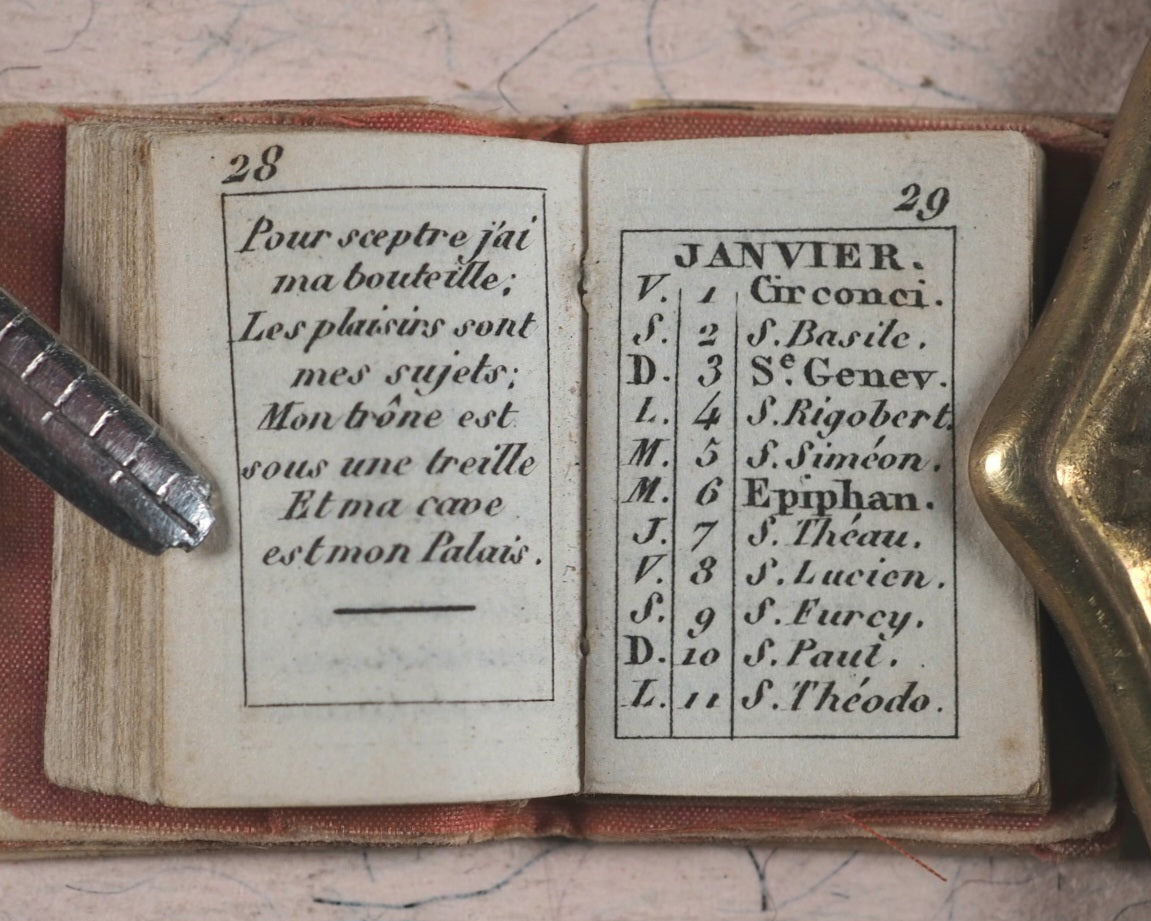 28
Pour sceptre j'ai
ma bouteille;
Les plaisirs sont
mes sujets;
Mon trône est
sous une treille
Et ma cave
est mon Palais.
29
JANVIER.
V. 1 Circonci.
S. 2 S. Basile.
D. 3 Se. Genev.
L. 4 S. Rigobert.
M. 5 S. Siméon.
M. 6 Epiphan.
J. 7 S. Théau.
V. 8 S. Lucien.
S. 9 S. Furcy.
D. 10 S. Paul.
L. 11 S. Théodo.